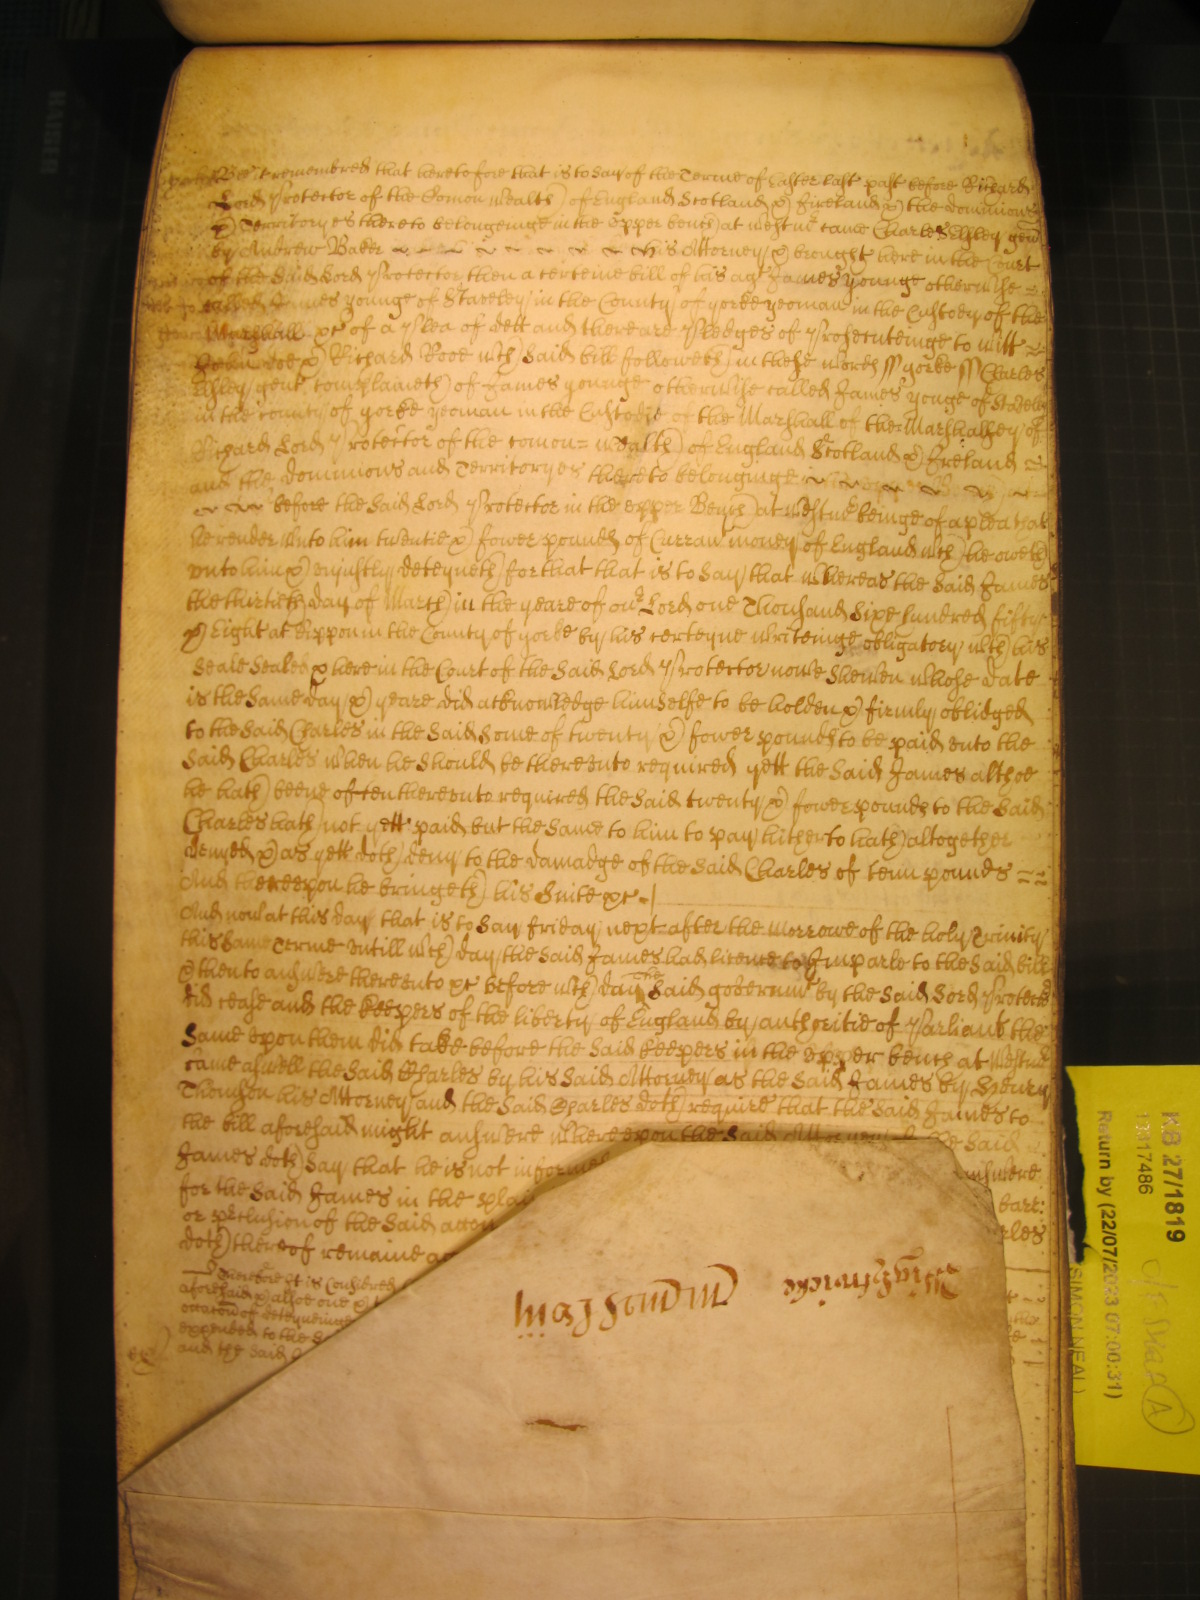 Bee it remembred that heretofore that is to say of the Terme of Easter last past before Richard
Lord Protector of the Comon wealth of England Scotland & Ireland & the dominions
& Territoryes thereto belongeinge in the upper bench at Westmr came Charles Ashley gent
by Andrew Baker his Attorney & brought here in the Court
of the said Lord Protector then a certeine bill of his agt James younge otherwise
called James younge of Staveley in the County of yorke yeoman in the Custody of the
Marshall &c of a Plea of dett and there are Pledges of Prosecuteinge to witt
John doe & Richard Rooe wch said bill followeth in these words ss yorke ss Charles
Ashley gent complaineth of James younge otherwise called James yonge of Staveley
in the county of yorke yeoman in the Custodie of the Marshall of the Marshallsey of
Richard Lord Protector of the comon= wealth of England Scotland & Ireland
and the dominions and Territoryes thereto belonginge
before the said Lord Protector in the upper Bench at Westmr beinge of a plea that
he render unto him twentie & fower pounds of Currant money of England wch he oweth
unto him & unjustly deteyneth for that that is to say that whereas the said James
the thirtieth day of March in the yeare of our Lord one Thousand sixe hundred fifty
& Eight at Rippon in the County of yorke by his certeyne writeinge obligatory wth his
seale sealed & here in the Court of the said Lord Protector nowe shewen whose date
is the same day & yeare did acknowledge himselfe to be holden & firmly obliged
to the said Charles in the said some of twenty & fower pounds to be paid unto the
said Charles when he should be thereunto required yett the said James althoe
he hath beene often thereunto required the said twenty & fower pounds to the said
Charles hath not yett paid but the same to him to pay hitherto hath altogether
denyed & as yett doth deny to the damadge of the said Charles of tenn pounds
And thereupon he bringeth his suite &c
And now at this day that is to say friday next after the morrowe of the holy Trinity
this same Terme untill wch day the said James had licence to Imparle to the said bill
& then to answere thereunto &c before wch day the said governmt by the said Lord Protector
did cease and the Keepers of the liberty of England by authoritie of Parliamt the
same upon them did take before the said keepers in the upper bench at Westmr
came aswell the said Charles by his said Attorney as the said James by Henry
Thomson his Attorney and the said Charles doth require that the said James to
the bill aforesaid might answere whereupon the said Attorney of the said
James doth say that he is not informed answere
for the said James in the plac
or preclusion of the said accon
doth thereof remaine
Therefore it is Considered
aforesaid & alsoe one
occacon of deteyneinge
expended to the
and the said
KB 27/1819
Return by (22/07/2023 07:00:31)
(SIMON NEAL)
A